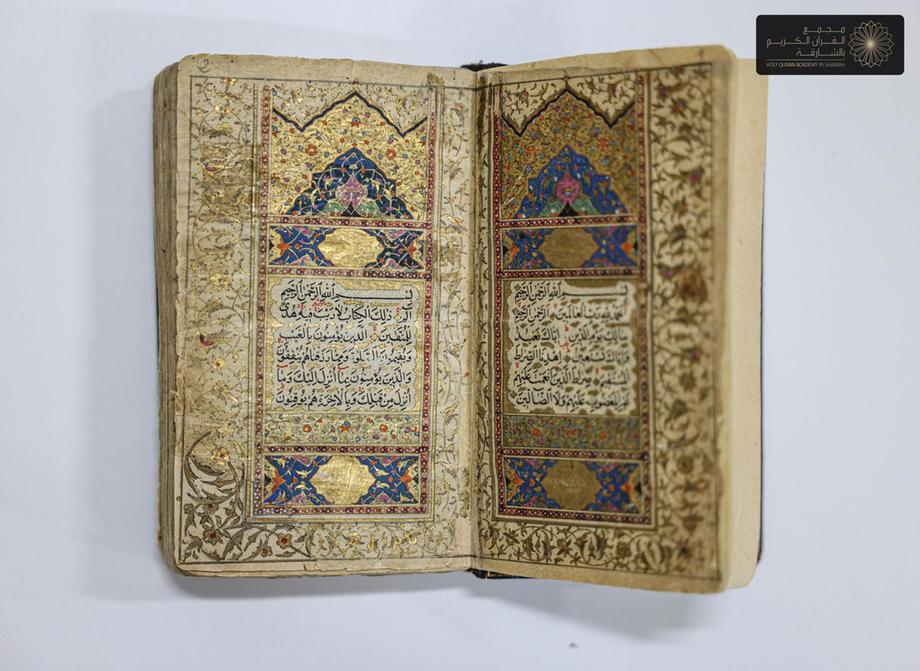 مجمع
القرآن الكريم
بالشارقة
HOLY QURAN ACADEMY IN SHARJAH
بسم الله الرحمن الرحيم
الحمد لله رب العالمين الرحمن الرحيم
مالك يوم الدين اياك نعبد
واياك نستعين اهدنا الصراط
المستقيم صراط الذين انعمت عليهم
غير المغضوب عليهم ولا الضالين
2
بسم الله الرحمن الرحيم
الم ذلك الكتاب لا ريب فيه هدى
للمتقين الذين يؤمنون بالغيب
ويقيمون الصلوة ومما رزقناهم ينفقون
والذين يؤمنون بما انزل اليك وما
انزل من قبلك وبالاخرة هم يوقنون